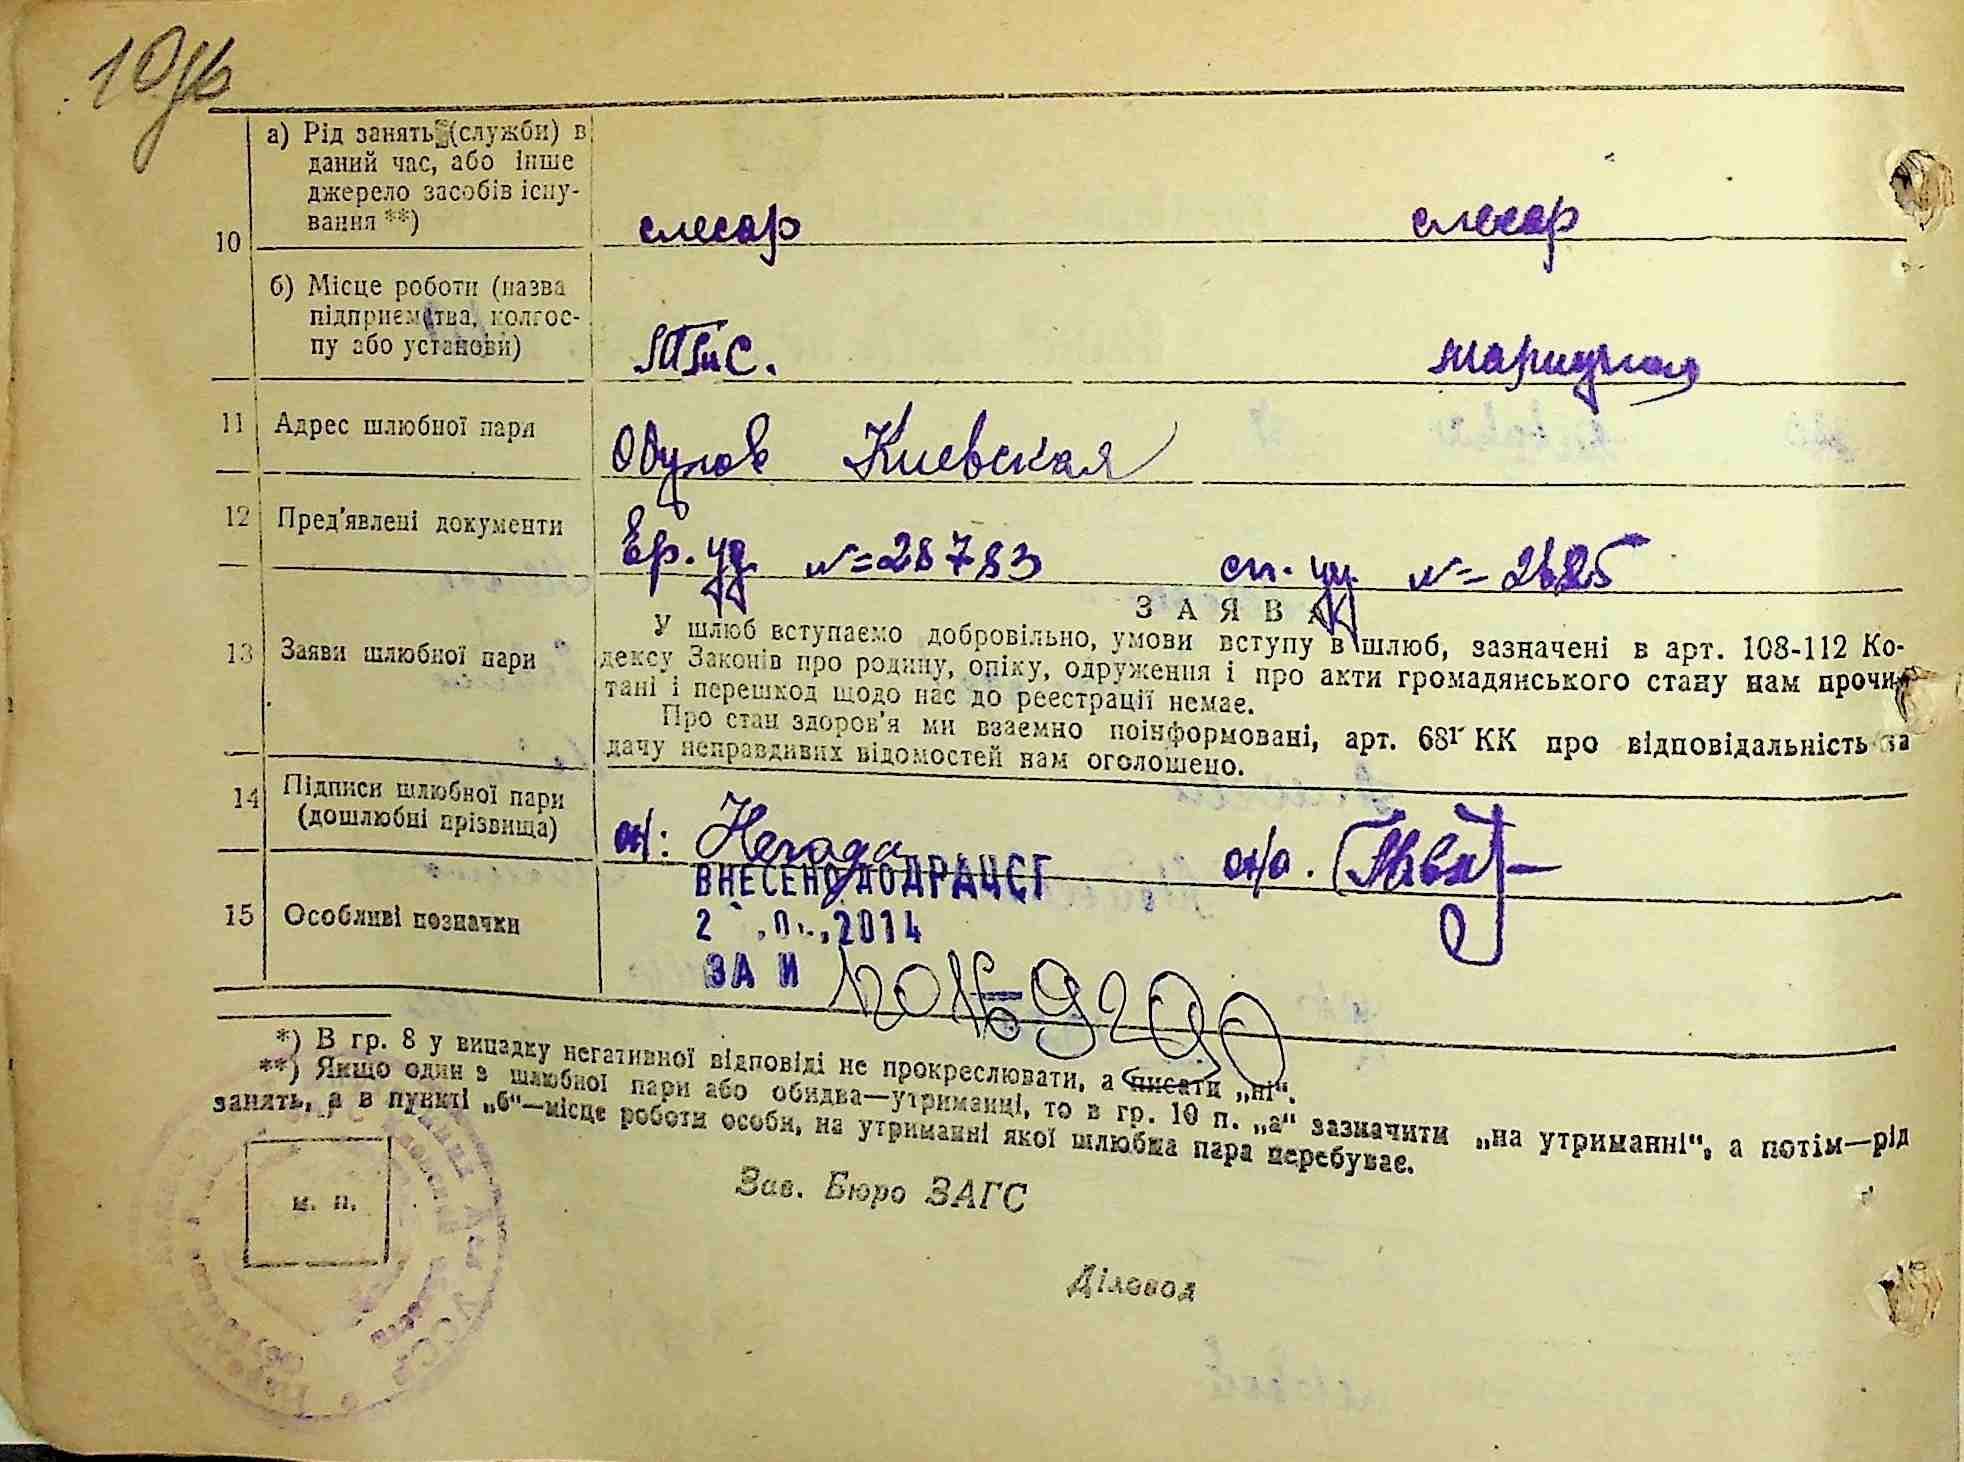 10
а) Рід занять (служби) в
даний час, або інше
джерело засобів існу-
вання **)
слесар слесар
б) Місце роботи (назва
підприємства, колгос-
пу або установи)
11 Адрес шлюбної пари
Киевская
12 Пред'явлені документи
Ер. уд №=28783 сп. уд. №=
13 Заяви шлюбної пари
ЗАЯВА
У шлюб вступаємо добровільно, умови вступу в шлюб, зазначені в арт. 108-112 Ко-
дексу Законів про родину, опіку, одруження і про акти громадянського стану нам прочи-
тані і перешкод щодо нас до реєстрації немає.
Про стан здоров'я ми взаємно поінформовані, арт. 68¹ КК про відповідальність за
дачу неправдивих відомостей нам оголошено.
14 Підписи шлюбної пари
(дошлюбні прізвища)
Негода
15 Особливі позначки
ВНЕСЕНО ДО ДРАЦСГ
2014
ЗА №
*) В гр. 8 у випадку негативної відповіді не прокреслювати, а писати „ні“.
**) Якщо один з шлюбної пари або обидва—утриманці, то в гр. 10 п. „а“ зазначити „на утриманні“, а потім—рід
занять, а в пункті „б“—місце роботи особи, на утриманні якої шлюбна пара перебуває.
м. п.
Зав. Бюро ЗАГС
Діловод